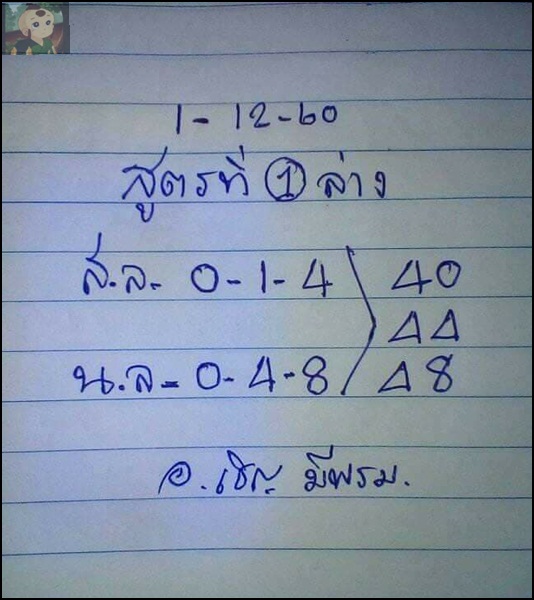 1-12-60
สูตรที่ ① ล่าง
ส.ล- 0-1-4 40
44
น.ล- 0-4-8 48
อ. เชิญ มีพรม.